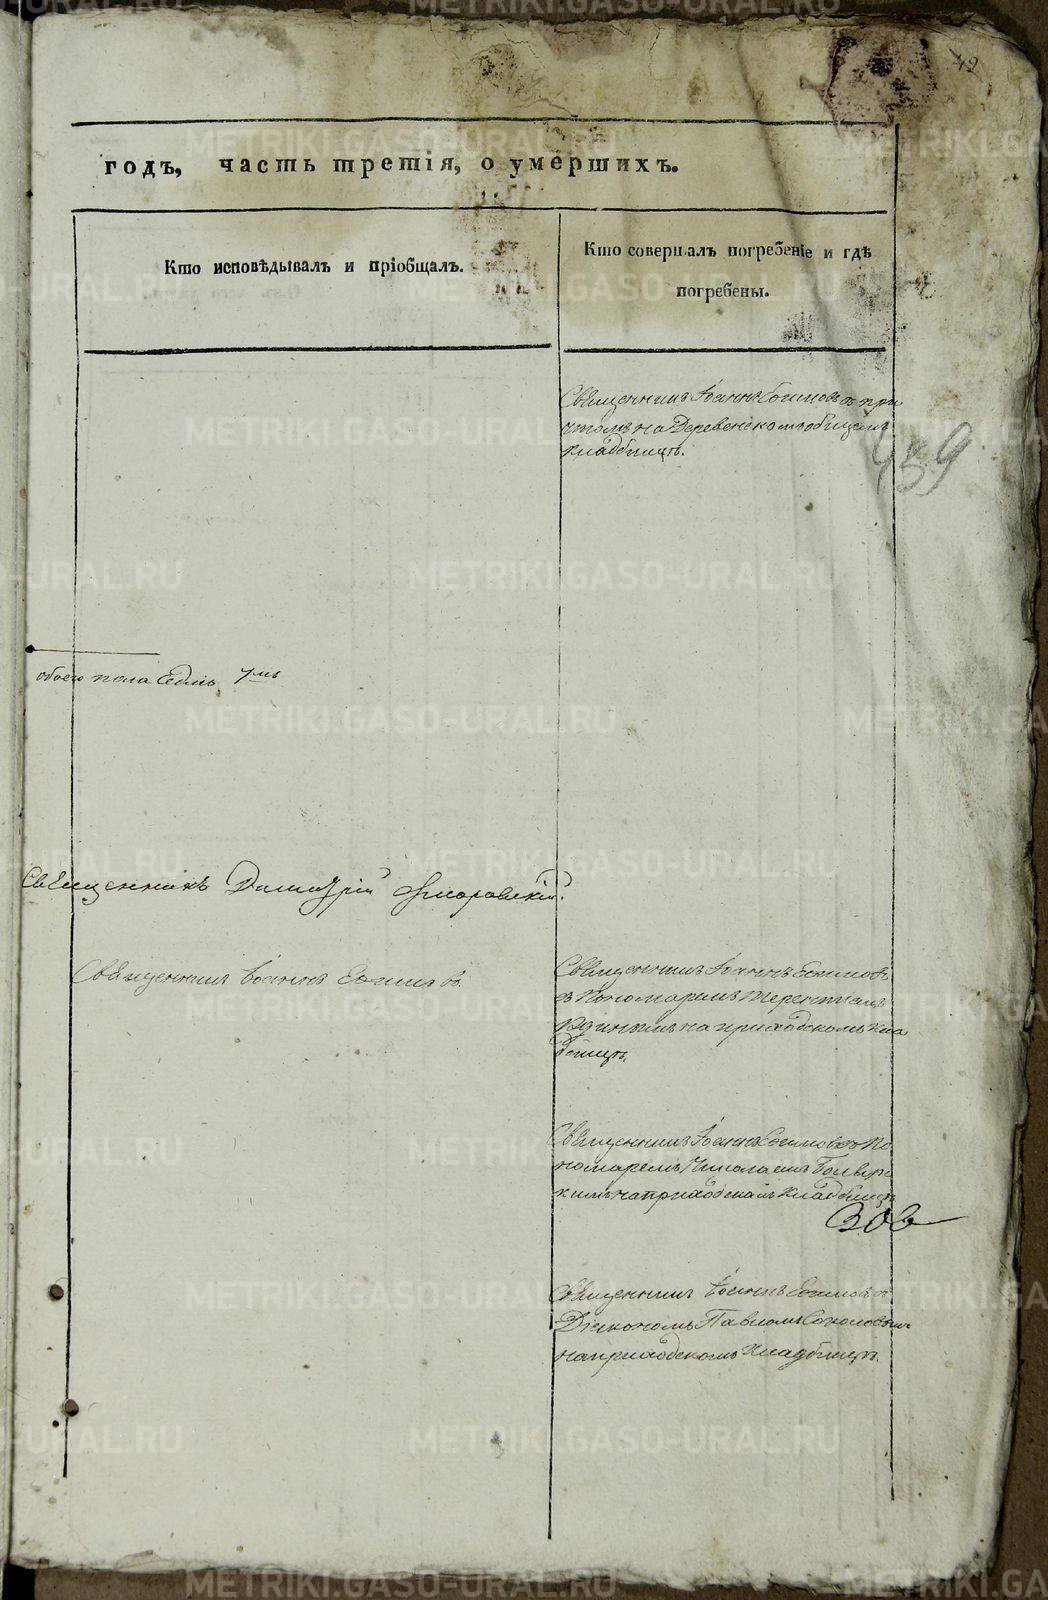 42
годъ, часть третія, о умершихъ.
Кто исповѣдывалъ и пріобщалъ.
Кто совершалъ погребеніе и гдѣ
погребены.
Священникъ Іоаннъ съ при
чтомъ на Деревенскомъ общемъ
кладбищѣ.
439
обоего пола Седмь 7мь
Священникъ Димитрій
Священникъ Іоаннъ
Священникъ Іоаннъ
съ Пономаремъ Терентіемъ
на приходскомъ кла
дбищѣ.
Священникъ Іоаннъ съ по
номаремъ Николаемъ
кимъ на приходскомъ кладбищѣ
Священникъ Іоаннъ съ
Діякономъ Павломъ Соколовымъ
на приходскомъ кладбищѣ.
METRIKI.GASO-URAL.RU